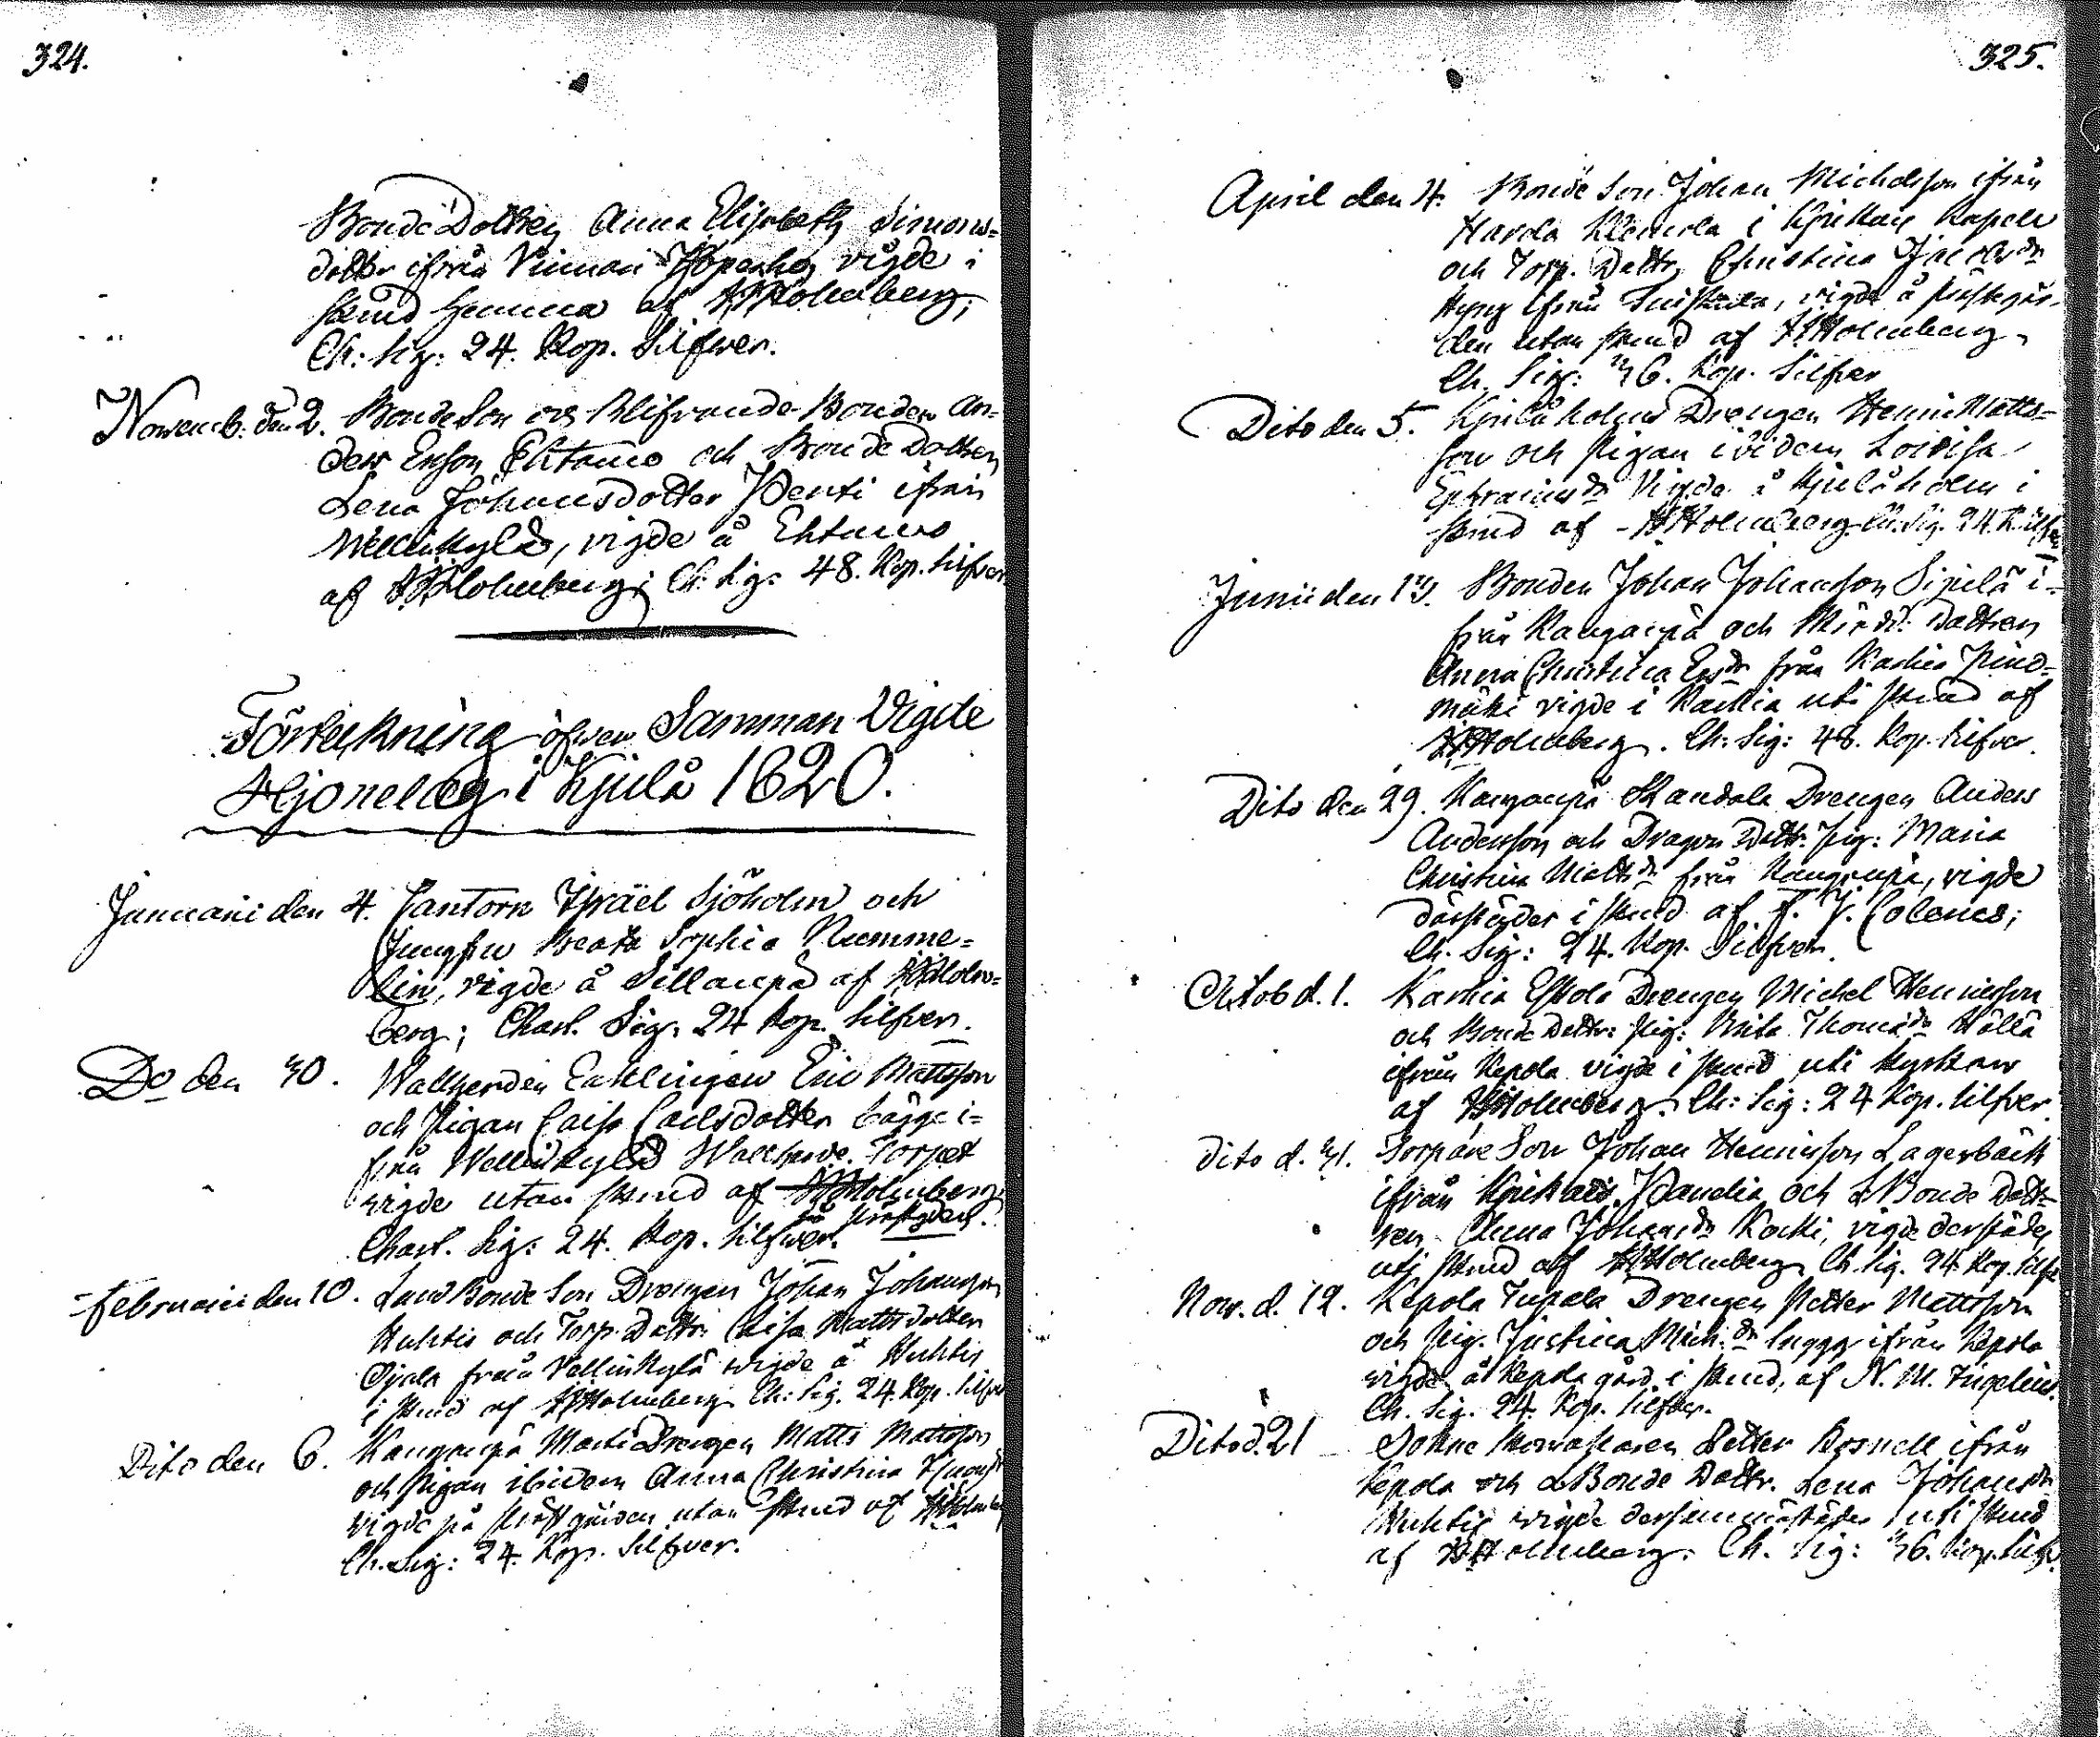 324.
Bonde Dottren Anna Elisabeth Simons=
dotter ifrån Vinnari Köpenhoy vigde i
skrud hemma af HHolmberg;
Ch: Sig: 24. Kop. Silfwer.
Novemb. den 2. Bonde Son och Blifvande Bonden An=
ders Ersson Ehtamo och Bonde Dottren
Lena Johansdotter Pentti ifrån
Wellinkylä, vigde å Ehtamo
af HHolmberg; Ch: Sig: 48. Kop. Silfver
Förtekning öfwer Samman Vigde
Hjonelag i Kjulå 1820.
Januarii den 4. Cantorn Israël Sjöholm och
Jungfru Beata Sophia Numme=
lin, vigde å Sillanpä af HHolm=
berg; Charl. Sig: 24 Kop. Silfver.
Do den 30. Wallherden Enklingen Eric Mattsson
och Pigan Caisa Carlsdotter bägge i=
från Wellinkylä Wallherde Torpet
vigde utan skrud af HHolmberg
på Prästgården.
Charl. Sig: 24. Kop. Silfwer.
Februarii den 10. Land Bonde Son Drengen Johan Johansson
Huhtis och Torp. Dottr. Lisa Mattsdotter
Ojala från Vellinkylä vigde å Huhtis
i skrud af HHolmberg Ch: Sig. 24. Kop. Silfver
Dito den 6. Kangaupä Marti Drengen Matts Mattsson
och Pigan ibidem Anna Christina
vigde på Prästgården utan skrud af HHolmberg
Ch. Sig: 24. Kop. Silfver.
325.
April den 4. Bonde Son Johan Michelsson ifrån
Harola Klemola i Kjukais Kapell
och Torp. Dottr. Christina Jacobsdr
ifrån Suiskala, vigde å Prästegår=
den utan skrud af HHolmberg
Ch. Sig: 36. Kop. Silfver
Dito den 5. Kjulåholms Drengen Henric Matts=
son och Pigan ibidem Lovisa
Ephraimsdr Vigde å Kjulåholm i
skrud af HHolmberg Ch. Sig. 24. K. Silfver
Junii den 13. Bonden Johan Johansson Sipilä i=
från Kangaupä och Dottren
Anna Christina Ersdr från Karhia
mäki vigde i Karhia uti skrud af
HHolmberg. Ch: Sig: 48. Kop. Silfver.
Dito den 29. Kangaupä Skandola Drengen Anders
Andersson och Dragon Dottr: Pig: Maria
Christina Mattsdr från Kangaupä, vigde
därstädes i skrud af F. V. Colenes;
Ch. Sig: 24. Kop. Silfver.
Octob d. 1. Karhia Eskola Drengen Michel Henricsson
och Bonde Dottr: Pig: Brita Thomasdr Källä
ifrån Kepola vigde i skrud uti kyrkan
af HHolmberg. Ch: Sig: 24 Kop. Silfver
Dito d. 31. Torpare Son Johan Henricsson Lagerbäck
ifrån Kjukais, Panelia, och LBonde Dott=
ren Anna Johansdr Kocki, vigde derstädes
uti skrud af HHolmberg. Ch. Sig. 24 Kop. Silfver
Nov. d. 12. Kepola Tupala Drengen Petter Mattsson
och Pig. Justina Mich.dr bägge ifrån Kepola
vigde å Kepola gård, i skrud, af N. M. Tingelius.
Ch. Sig. 24. Kop. Silfver.
Dito d. 21 Petter Bosnell ifrån
Kepola och LBonde Dottr. Lena Johansdr
Huhtis vigde dersammastädes uti skrud
af HHolmberg. Ch. Sig: 36. Kop. Silfv.